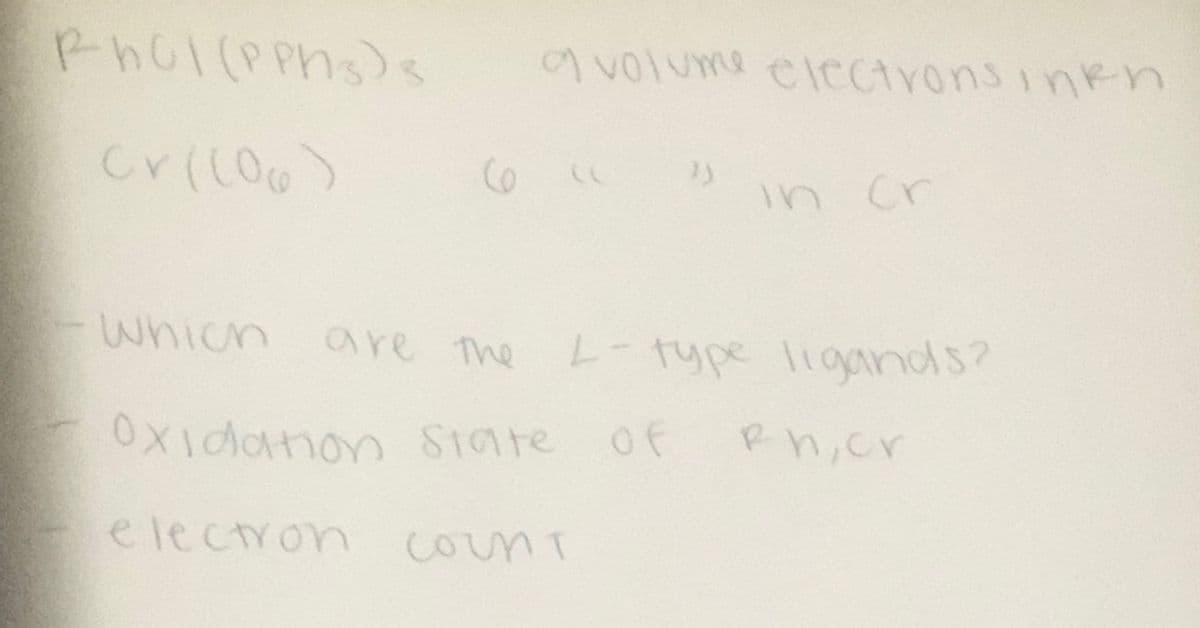 RhCl(PPh₃)₃ 9 volume electrons in Rh
Cr(CO₆) 6 " " in Cr
- Which are the L-type ligands?
- Oxidation state of Rh, Cr
- electron count